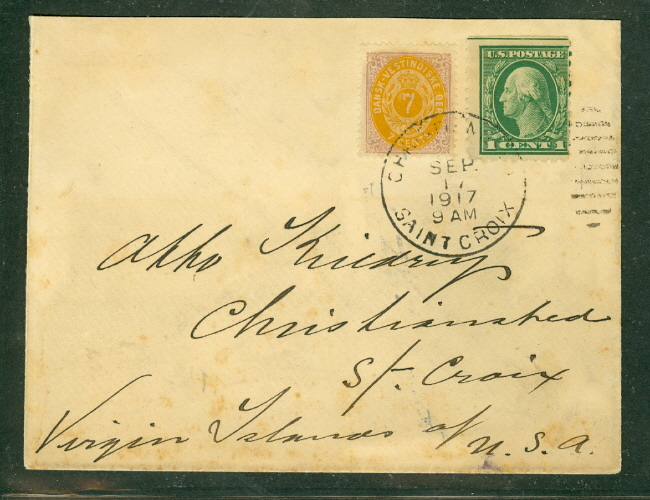 DANSK-VESTINDISKE ØER
7
7 CENTS
U.S. POSTAGE
1 CENT 1
SEP.
17
1917
9 AM
SAINT CROIX
Christiansted
St. Croix
Virgin Islands of U.S.A.